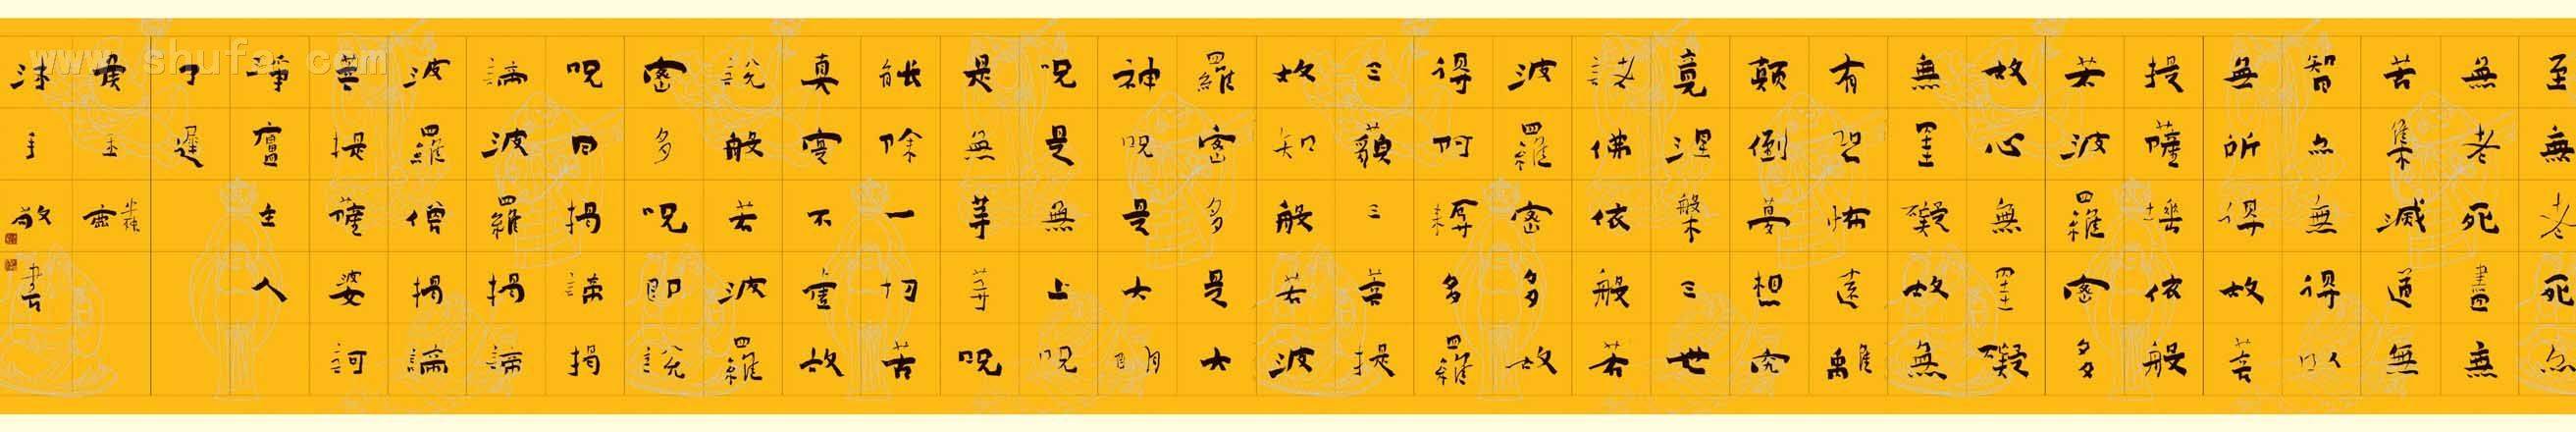 至無老死亦
無老死盡無
苦集滅道無
智亦無得以
無所得故菩
提薩埵依般
若波羅密多
故心無罣礙
無罣礙故無
有恐怖遠離
顛倒夢想究
竟涅槃三世
諸佛依般若
波羅密多故
得阿耨多羅
三藐三菩提
故知般若波
羅密多是大
神呪是大明
呪是無上呪
是無等等呪
能除一切苦
真實不虛故
說般若波羅
密多呪即說
呪曰揭諦揭
諦波羅揭諦
波羅僧揭諦
菩提薩婆訶
主人
手敬書
www.shufa.com